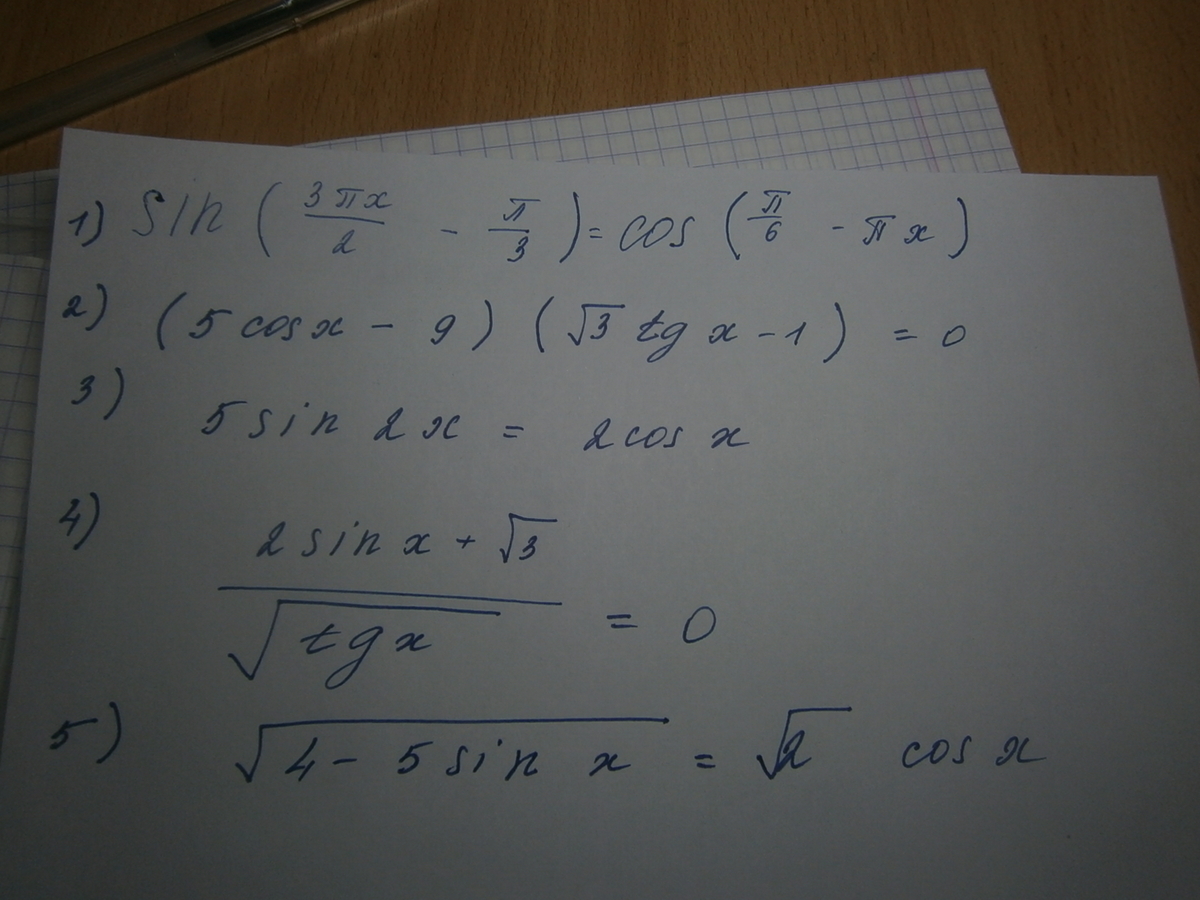 1) sin (3πx/2 - π/3) = cos (π/6 - πx)
2) (5 cos x - 9) (√3 tg x - 1) = 0
3) 5 sin 2x = 2 cos x
4) (2 sin x + √3)/√(tg x) = 0
5) √(4 - 5 sin x) = √2 cos x